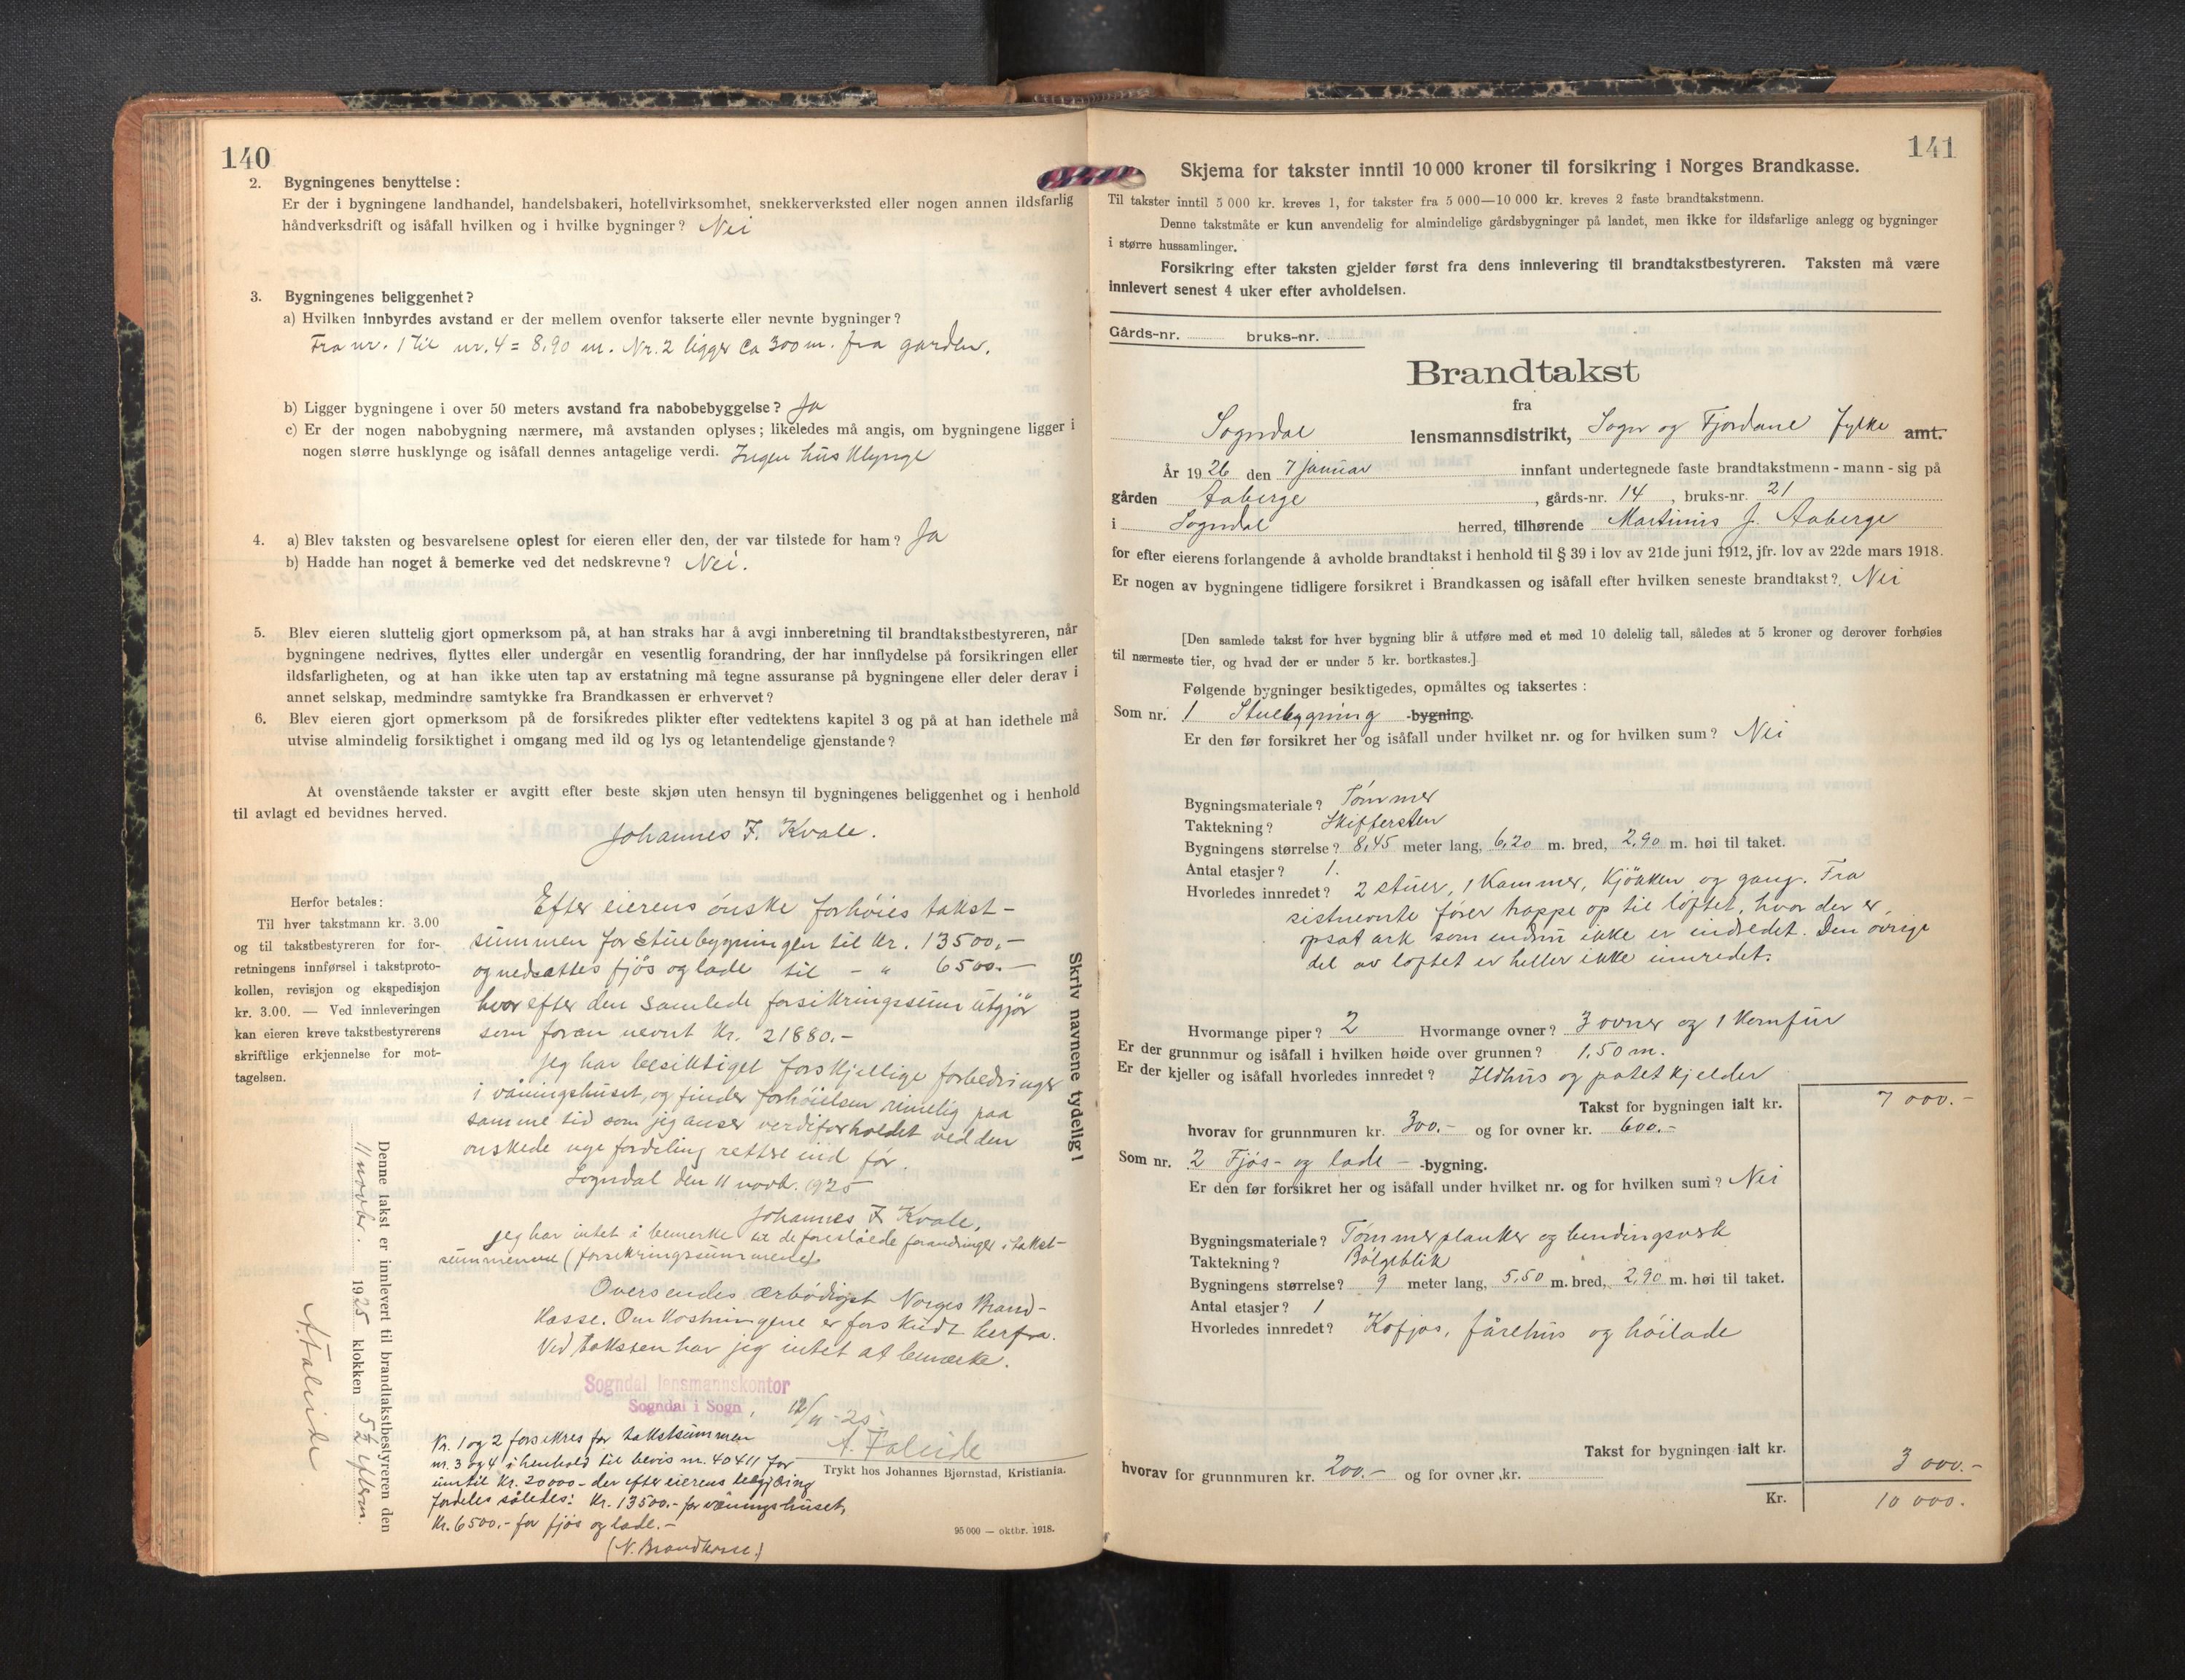 140
2. Bygningenes benyttelse:
Er der i bygningene landhandel, handelsbakeri, hotellvirksomhet, snekkerverksted eller nogen annen ildsfarlig
håndverksdrift og isåfall hvilken og i hvilke bygninger? Nei
3. Bygningenes beliggenhet?
a) Hvilken innbyrdes avstand er der mellem ovenfor takserte eller nevnte bygninger?
Fra nr. 1 til nr. 4 = 8,90 m. Nr. 2 ligger ca 300 m. fra garden.
b) Ligger bygningene i over 50 meters avstand fra nabobebyggelse? Ja
c) Er der nogen nabobygning nærmere, må avstanden oplyses; likeledes må angis, om bygningene ligger i
nogen større husklynge og isåfall dennes antagelige verdi. Ingen husklynge
4. a) Blev taksten og besvarelsene oplest for eieren eller den, der var tilstede for ham? Ja
b) Hadde han noget å bemerke ved det nedskrevne? Nei.
5. Blev eieren sluttelig gjort opmerksom på, at han straks har å avgi innberetning til brandtakstbestyreren, når
bygningene nedrives, flyttes eller undergår en vesentlig forandring, der har innflydelse på forsikringen eller
ildsfarligheten, og at han ikke uten tap av erstatning må tegne assuranse på bygningene eller deler derav i
annet selskap, medmindre samtykke fra Brandkassen er erhvervet?
6. Blev eieren gjort opmerksom på de forsikredes plikter efter vedtektens kapitel 3 og på at han idethele må
utvise almindelig forsiktighet i omgang med ild og lys og letantendelige gjenstande?
At ovenstående takster er avgitt efter beste skjøn uten hensyn til bygningenes beliggenhet og i henhold
til avlagt ed bevidnes herved.
Johannes F. Kvale.
Herfor betales:
Til hver takstmann kr. 3.00
og til takstbestyreren for for-
retningens innførsel i takstproto-
kollen, revisjon og ekspedisjon
kr. 3.00. — Ved innleveringen
kan eieren kreve takstbestyrerens
skriftlige erkjennelse for mot-
tagelsen.
Efter eierens ønske forhøies takst-
summen for stuebygningen til kr. 13500,-
og nedsættes fjøs og lade til - " 6500.-
hvorefter den samlede forsikringssum utgjør
som foran nevnt kr. 21880.-
Jeg har besiktiget forskjellige forbedringer
i våningshuset, og finder forhøielsen rimelig paa
samme tid som jeg anser verdiforholdet ved den
ønskede nye fordeling rettere end før.
Sogndal den 11 novb. 1925
Johannes F. Kvale.
Jeg har intet i bemerke til de foreslåede forandringer i takst-
summene (forsikringssummene).
Oversendes ærbødigst Norges Brand-
kasse. Omkostningene er forskudt herfra.
Ved taksten har jeg intet at bemerke.
Sogndal lensmannskontor
Sogndal i Sogn, 12/11-25
A. Faleide
Nr. 1 og 2 forsikres for takstsummen
nr. 3 og 4 i henhold til bevis nr. 40411 for
inntil kr. 20000- der efter eierens begjæring
fordeles således: Kr. 13500.- for våningshuset,
kr. 6500.- for fjøs og lade.-
(N. Brandkasse)
Skriv navnene tydelig!
Denne takst er innlevert til brandtakstbestyreren den
11 novbr. 1925 klokken 5½ efterm.
A. Faleide
Trykt hos Johannes Bjørnstad, Kristiania.
95 000 — oktbr. 1918.
141
Skjema for takster inntil 10 000 kroner til forsikring i Norges Brandkasse.
Til takster inntil 5 000 kr. kreves 1, for takster fra 5 000—10 000 kr. kreves 2 faste brandtakstmenn.
Denne takstmåte er kun anvendelig for almindelige gårdsbygninger på landet, men ikke for ildsfarlige anlegg og bygninger
i større hussamlinger.
Forsikring efter taksten gjelder først fra dens innlevering til brandtakstbestyreren. Taksten må være
innlevert senest 4 uker efter avholdelsen.
Gårds-nr. bruks-nr.
Brandtakst
fra
Sogndal lensmannsdistrikt, Sogn og Fjordane Fylke amt.
År 1926 den 7 januar innfant undertegnede faste brandtakstmenn - mann - sig på
gården Aaberge, gårds-nr. 14, bruks-nr. 21
i Sogndal herred, tilhørende Martinus J. Aaberge
for efter eierens forlangende å avholde brandtakst i henhold til § 39 i lov av 21de juni 1912, jfr. lov av 22de mars 1918.
Er nogen av bygningene tidligere forsikret i Brandkassen og isåfall efter hvilken seneste brandtakst? Nei
[Den samlede takst for hver bygning blir å utføre med et med 10 delelig tall, således at 5 kroner og derover forhøies
til nærmeste tier, og hvad der er under 5 kr. bortkastes.]
Følgende bygninger besiktigedes, opmåltes og taksertes:
Som nr. 1 Stuebygning -bygning.
Er den før forsikret her og isåfall under hvilket nr. og for hvilken sum? Nei
Bygningsmateriale? Tømmer
Taktekning? Skiffersten
Bygningens størrelse? 8,45 meter lang, 6,20 m. bred, 2,90 m. høi til taket.
Antal etasjer? 1.
Hvorledes innredet? 2 stuer, 1 kammer, kjøkken og gang. Fra
sistnevnte fører trappe op til loftet, hvor der er
opsat ark som endnu ikke er indredet. Den øvrige
del av loftet er heller ikke innredet.
Hvormange piper? 2 Hvormange ovner? 3 ovner og 1 komfur
Er der grunnmur og isåfall i hvilken høide over grunnen? 1,50 m.
Er der kjeller og isåfall hvorledes innredet? Ildhus og potetkjelder
Takst for bygningen ialt kr. 7 000.-
hvorav for grunnmuren kr. 300.- og for ovner kr. 600.-
Som nr. 2 Fjøs- og lade - -bygning.
Er den før forsikret her og isåfall under hvilket nr. og for hvilken sum? Nei
Bygningsmateriale? Tømmer planker og bindingsverk
Taktekning? Bølgeblik
Bygningens størrelse? 9 meter lang, 5,50 m. bred, 2,90 m. høi til taket.
Antal etasjer? 1
Hvorledes innredet? Kofjøs, fårehus og høilade
Takst for bygningen ialt kr. 3 000.-
hvorav for grunnmuren kr. 200.- og for ovner kr.
Kr. 10 000.